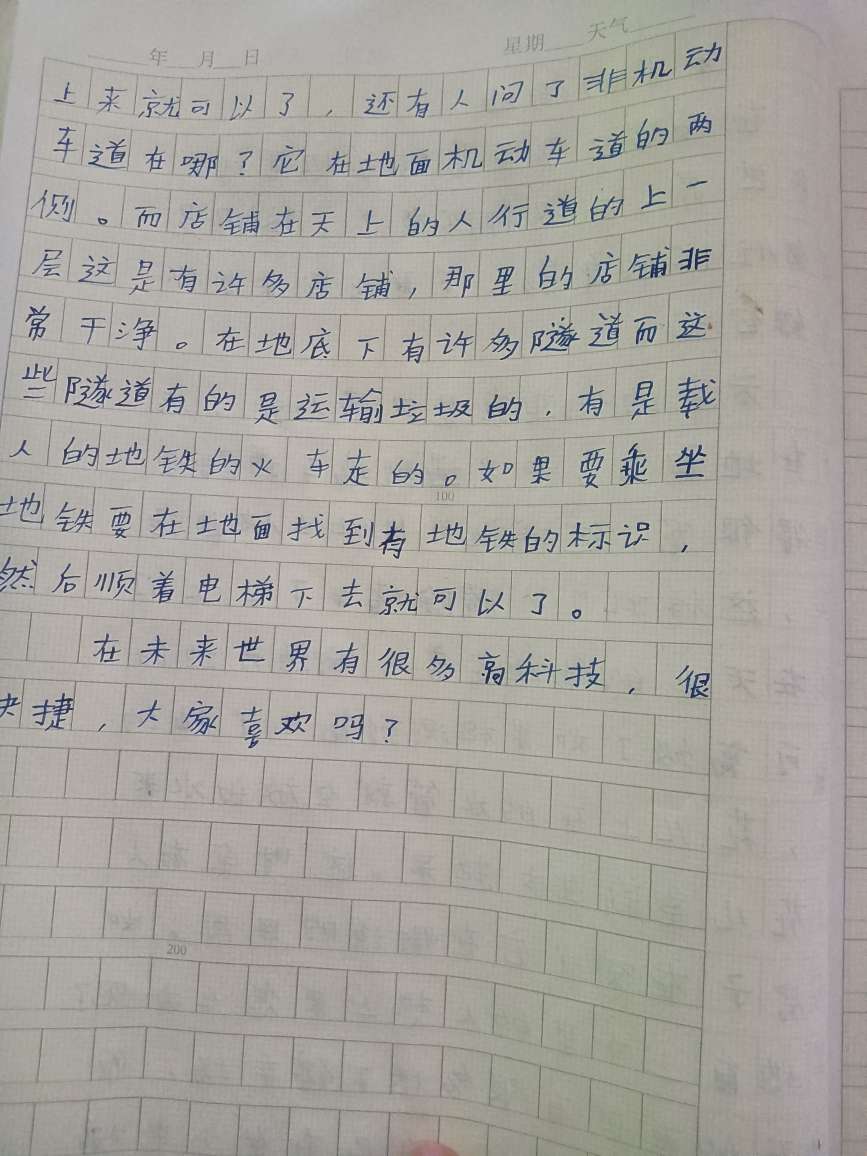 年 月 日 星期 天气
上来就可以了，还有人问了非机动
车道在哪？它在地面机动车道的两
侧。而店铺在天上的人行道的上一
层这是有许多店铺，那里的店铺非
常干净。在地底下有许多隧道而这
些隧道有的是运输垃圾的，有是载
人的地铁的火车走的。如果要乘坐
100
地铁要在地面找到有地铁的标识，
然后顺着电梯下去就可以了。
在未来世界有很多高科技，很
快捷，大家喜欢吗？
200